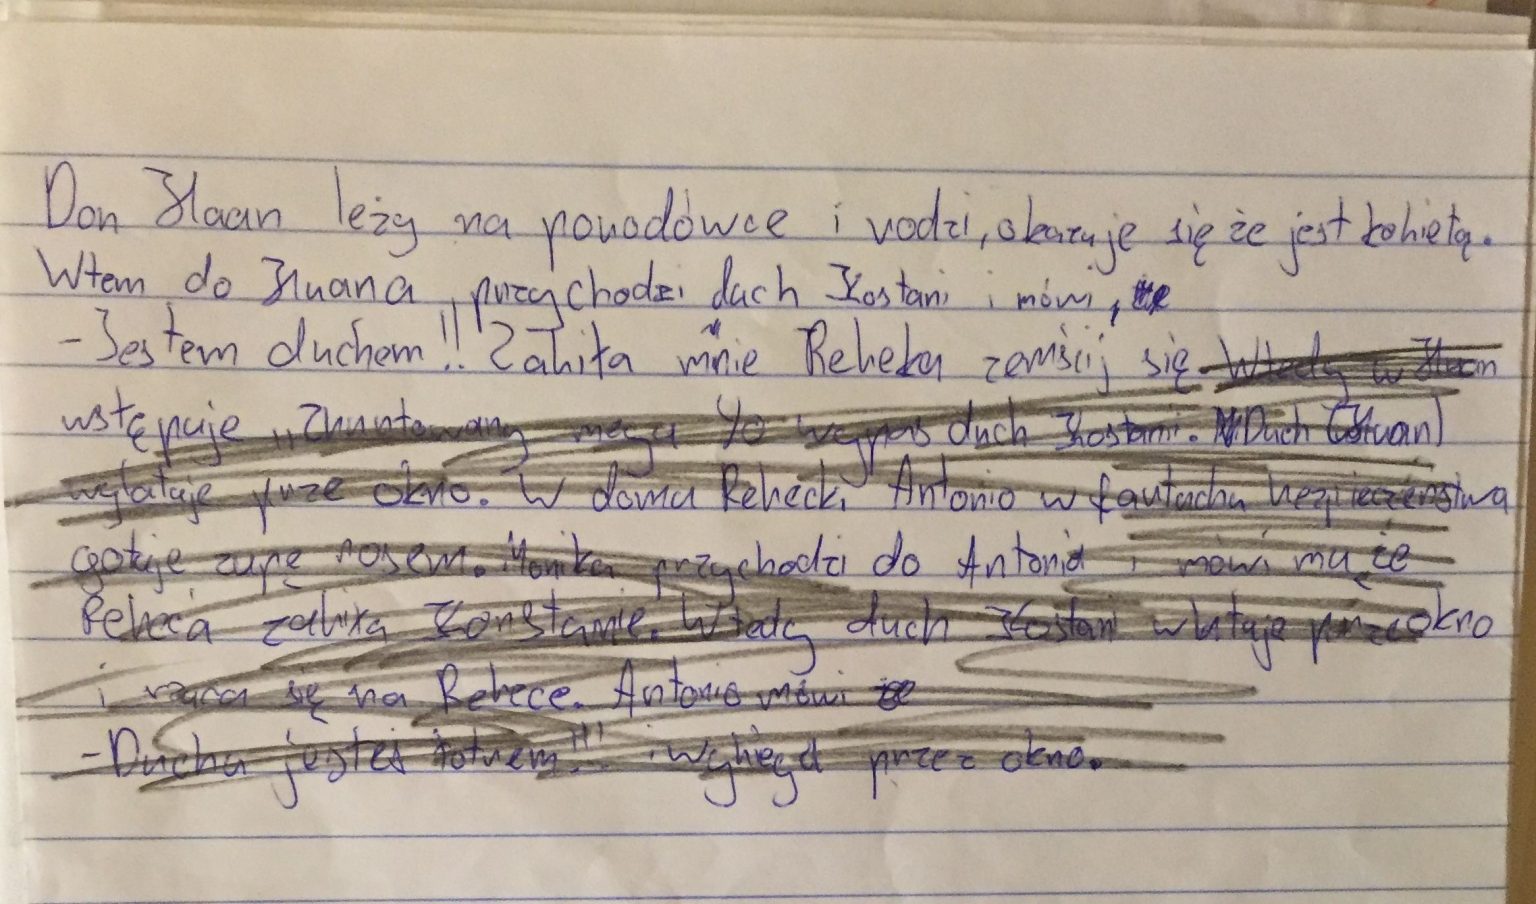 Don Huan leży na porodówce i rodzi, okazuje się że jest kobietą.
Wtem do Huana, przychodzi duch Kostani i mówi,
-Jestem duchem!! Zabiła mnie Rebeka zemścij się Wtedy w Huan
wstępuje duch Kostani. Duch (Huan)
wylatuje prze okno. W domu Rebecki Antonio w fartuchu bezpieczeństwa
gotuje zupę rosem. Monika przychodzi do Antonia i mówi mu że
Rebeca zabiła Konstanie. Wtedy duch Kostani wlatuje przez okno
i rzuca się na Rebece. Antonio mówi że
-Ducha jesteś łotrem!!! i wybiegł przez okno.